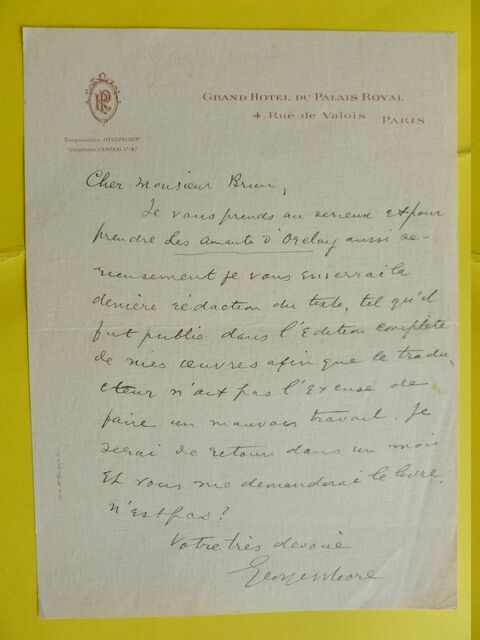 GRAND HOTEL DU PALAIS ROYAL
4, RUE DE VALOIS PARIS
Télephone: CENTRAL 17-47
Cher Monsieur Brun,
Je vous prends au serieux et pour
prendre Les Amants d'Orelay aussi se-
rieusement je vous enverrai la
denière rédaction du texte, tel qu'il
fut publié dans l'Edition complète
de mes œuvres afin que le tradu,
cteur n'ait pas l'excuse de
faire un mauvais travail. Je
serai de retour dans un mois
Et vous me demanderai le livre,
n'est pas?
Votre très devoué
George Moore